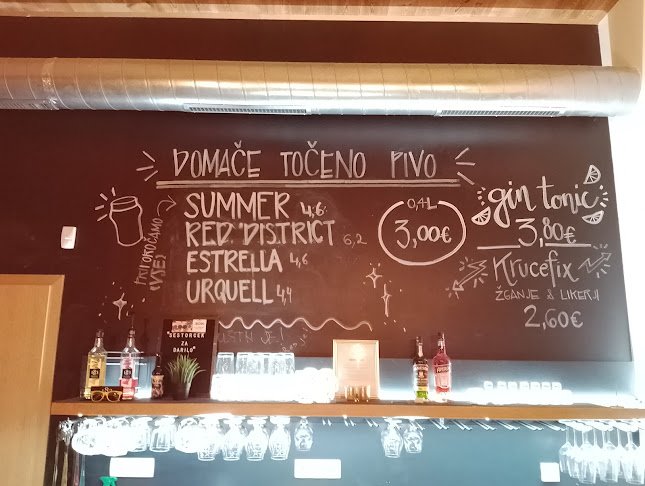 DOMAČE TOČENO PIVO
SUMMER 4,6
RED DISTRICT 6,2
ESTRELLA 4,6
URQUELL 4,4
PRIPOROČAMO
(VSE)
0,4L
3,00€
gin tonic
3,80€
Krucefix
ŽGANJE & LIKERJI
2,60€
ZA
DARILO